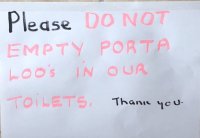 Please DO NOT
EMPTY PORTA
LOO's IN OUR
TOILETS. Thank you.